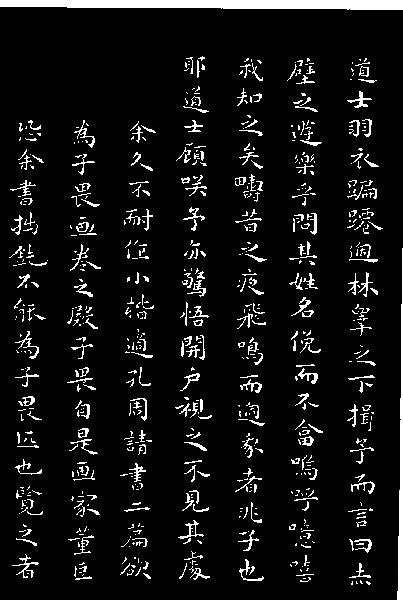 道士羽衣蹁躚過林皋之下揖予而言曰赤
壁之遊樂乎問其姓名俛而不畣嗚呼噫嘻
我知之矣疇昔之夜飛鳴而過家者非子也
耶道士顧咲予亦驚悟開户視之不見其處
余久不耐作小楷適孔周請書二篇欲
為子畏画卷之殿子畏自是画家董巨
恐余書拙鈍不能為子畏匹也覽之者